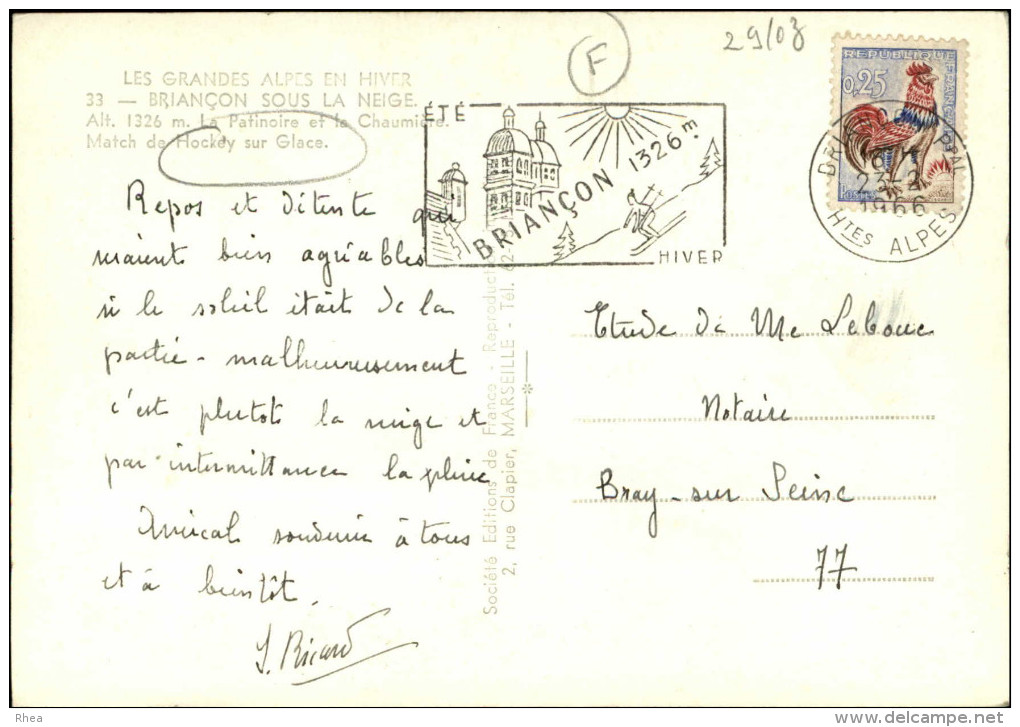 29/03
F
LES GRANDES ALPES EN HIVER
33 — BRIANÇON SOUS LA NEIGE.
Alt. 1326 m. La Patinoire et la Chaumière.
Match de Hockey sur Glace.
Repos et détente qui
seraient bien agréables
si le soleil était de la
partie - malheureusement
c'est plutôt la neige et
par intermittence la pluie
Amical souvenir à tous
et à bientôt.
J. Ricard
ÉTÉ
BRIANÇON 1326m.
HIVER
Société Editions de France - Reproduction
2, rue Clapier, MARSEILLE - Tél. 62
REPUBLIQUE FRANÇAISE
0,25
POSTES
1966
Htes ALPES
Etude de Me Lebouc
Notaire
Bray-sur Seine
77
Rhea
www.delcampe.net